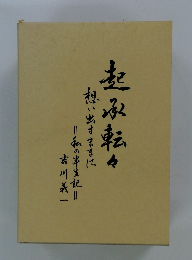 起承転々
想い出すままに
=私の半生記=
吉川義一